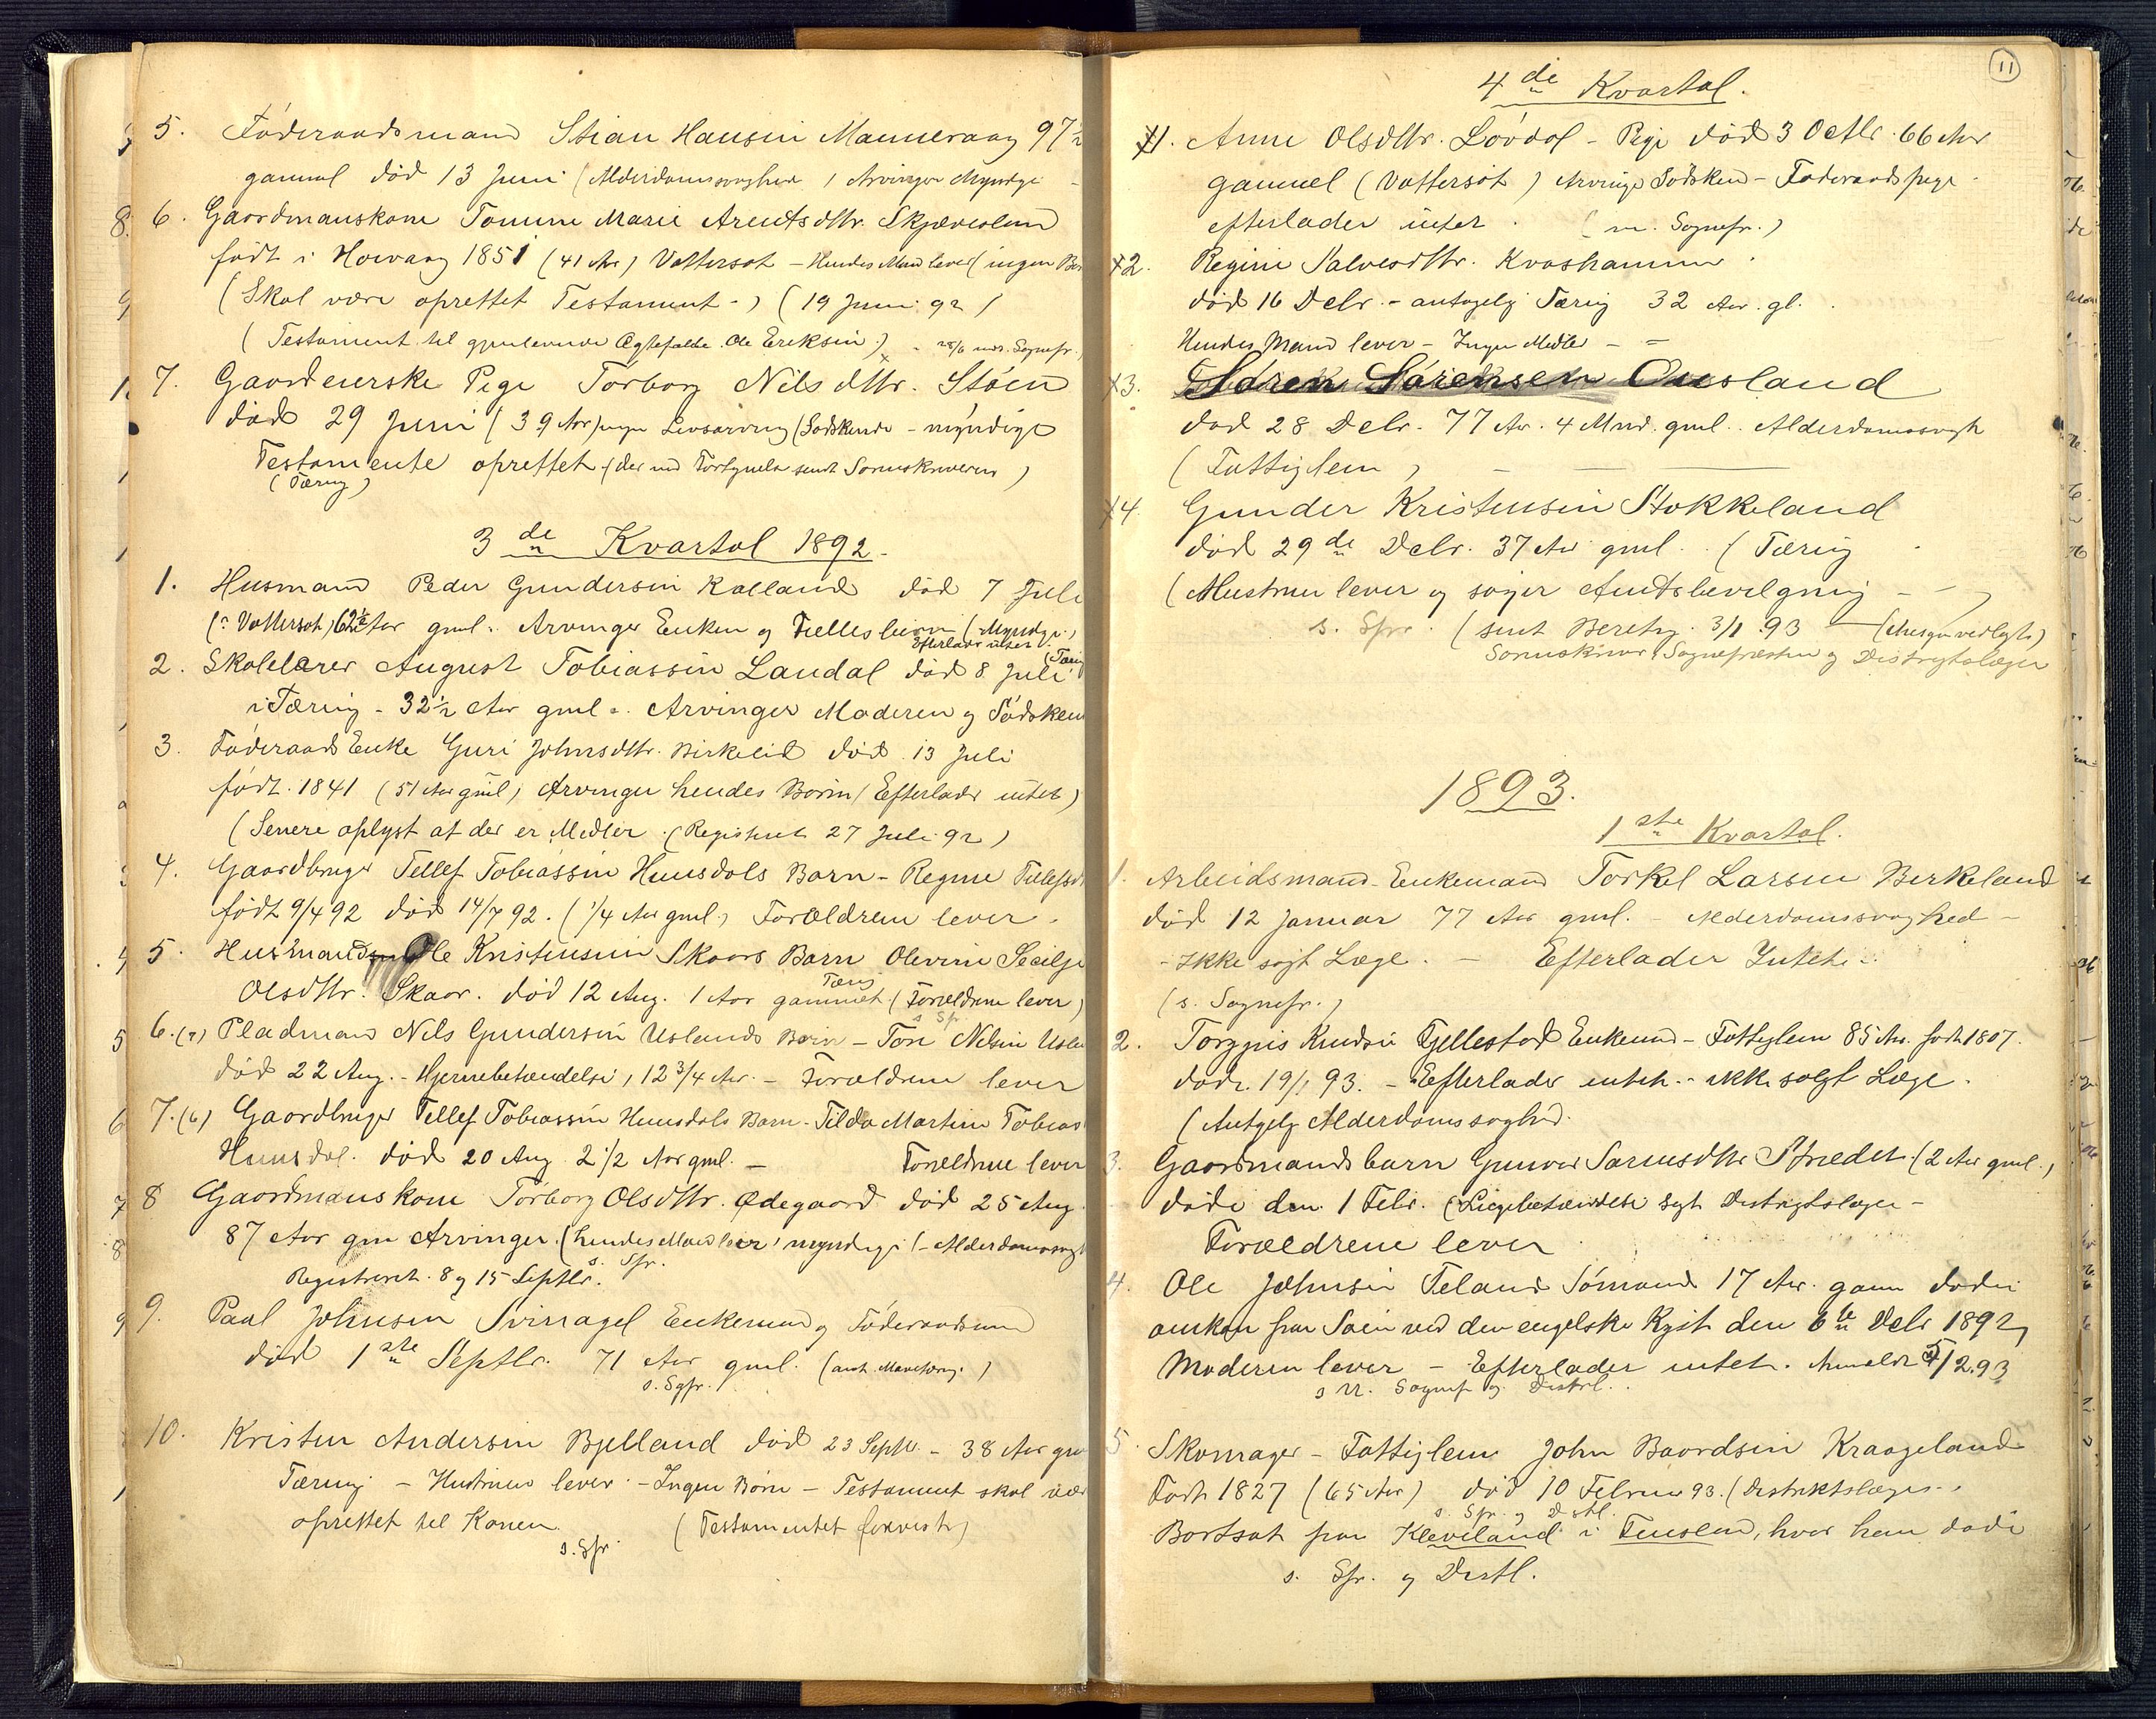 5. Föderaadsmand Stian Hansen Manneraag 97½
gammel död 13 Juni (Alderdomssvaghed) Arvinger Myndige
6. Gaardmanskone Tomine Marie Arentsdttr. Skjæveslund
født i Howaag 1851 (41 Aar) Vattersot - Hendes Mand lever (ingen
(Skal være oprettet Testament -) (19 Juni 92)
(Testament til gjenlevende Ægtefælde Ole Eriksen)
7. Gaardeierske Pige Torborg Nilsdttr. Stöen
död 29 Juni (39 Aar) ingen Livsarving (Södskende - myndige
Testamente oprettet (der ved Fortegnelse sendt Sorenskriveren)
(Tæring)
3 de Kvartal 1892.
1. Husmand Peder Gundersen Kalland död 7 Juli
(Vattersot) 62½ Aar gml. Arvinger Enken og Fælles börn (Myndige)
Efterlader intet
2. Skolelærer August Tobiassen Landal död 8 Juli
i Tæring - 32½ Aar gml. Arvinger Moderen og Södsken
3. Föderaads Enke Guri Johnsdttr. Birkelid död 13 Juli
född. 1841 (51 Aar gml) Arvinger hendes Börn (Efterlader intet)
(Senere oplyst at der er Midler. (Registreret 27 Juli 92)
4. Gaardbruger Tellef Tobiassen Hunsdals Barn - Regine Tellefsd
född 9/4 92 död 14/7 92. (1/4 Aar gml.) Forældrene lever.
5. Husmand Ole Kristensen Skaars Barn Olevine Secilje
Olsdttr. Skaar. död 12 Aug. 1 Aar gammel (Forældrene lever)
Tæring
6. (7) Pladsmand Nils Gundersen Uslands Barn - Tore Nilsen Usla
död 22 Aug. - Hjernebetændelse, 12 3/4 Aar. - Forældrene lever
7. (6) Gaardbruger Tellef Tobiassen Hunsdals Barn - Tilda Martine Tobias
Hunsdal. död 20 Aug 2 1/2 Aar gml. - Forældrene lever
8 Gaardmanskone Torborg Olsdttr. Ødegaard död 25 Aug.
87 Aar gm Arvinger. (hendes Mand lever) myndige (- Alderdomssvagh
s. Spr.
Registreret. 8 og 15 Septbr.
9. Paal Johnsen Svinagel Enkemand og Föderaadsmand
död 1ste Septbr. 71 Aar gml.
s. Sgpr.
10. Kristen Andersen Bjelland död 23 Septbr. - 38 Aar gm
Tæring - Hustruen lever - Ingen Börn - Testament skal være
oprettet til Konen. (Testamentet forevist)
s. Spr.
11
4 de Kvartal.
1. Anne Olsdttr. Lövdal - Pige död 3 Octbr. 66 Aar
gammel (Vattersot) Arvinge Södsken - Föderaads pige
efterlader intet. (m. Sognepr.)
2. Regine Salvesdttr. Kvashammer
död 16 Decbr. - antagelig Tæring 32 Aar. gl.
Hendes Mand lever - Ingen Midler - -
3. Sören Sörensen Ousland
död 28 Decbr. 77 Aar. 4 Mnd. gml. Alderdomssvagh
(Fattiglem)
4. Gunder Kristensen Stokkeland
död 29de Decbr. 37 Aar gml. (Tæring
(Hustruen lever og söger Amtsbevilgning -
s. Spr. (sent Beretng. 3/1 93 -
Sorenskriver, Sognepresten og Distrigtslægen
1893.
1 ste Kvartal.
1. Arbeidsmand - Enkemand Torkel Larsen Birkeland
död 12 Januar 77 Aar gml. - Alderdomssvaghed -
- Ikke sögt Læge. - Efterlader Intet.
(s. Sognepr.)
2. Torgris Knudsen Fjellestad Enkemd - Fattiglem 85 Aar. född 1807.
död. 19/1 93. - Efterlader intet. - ikke solgt Læge.
(Antgelg Alderdomssvaghed.
3. Gaardmandsbarn Gunvor Sörensdttr Strædet (2 Aar gml.)
döde den 1 Febr. (Lungebetændelse sögt Distrigtslægen -
Forældrene lever
4. Ole Johnsen Teland Sömand 17 Aar. gam döde
omkom paa Söen ved den engelske Kyst den 6te Decbr 1892,
Moderen lever - Efterlader intet. Anmeldt 5/2.93
s. Sognepr og Distrl.
5. Skomager - Fattiglem John Baardsen Kraageland
Född 1827 (65 Aar) död 10 Februar 93. (Distriktslægen.
s. Spr. og Distl.
Bortsat paa Kleveland i Finsland, hvor han döde
s. Spr. og Distl.